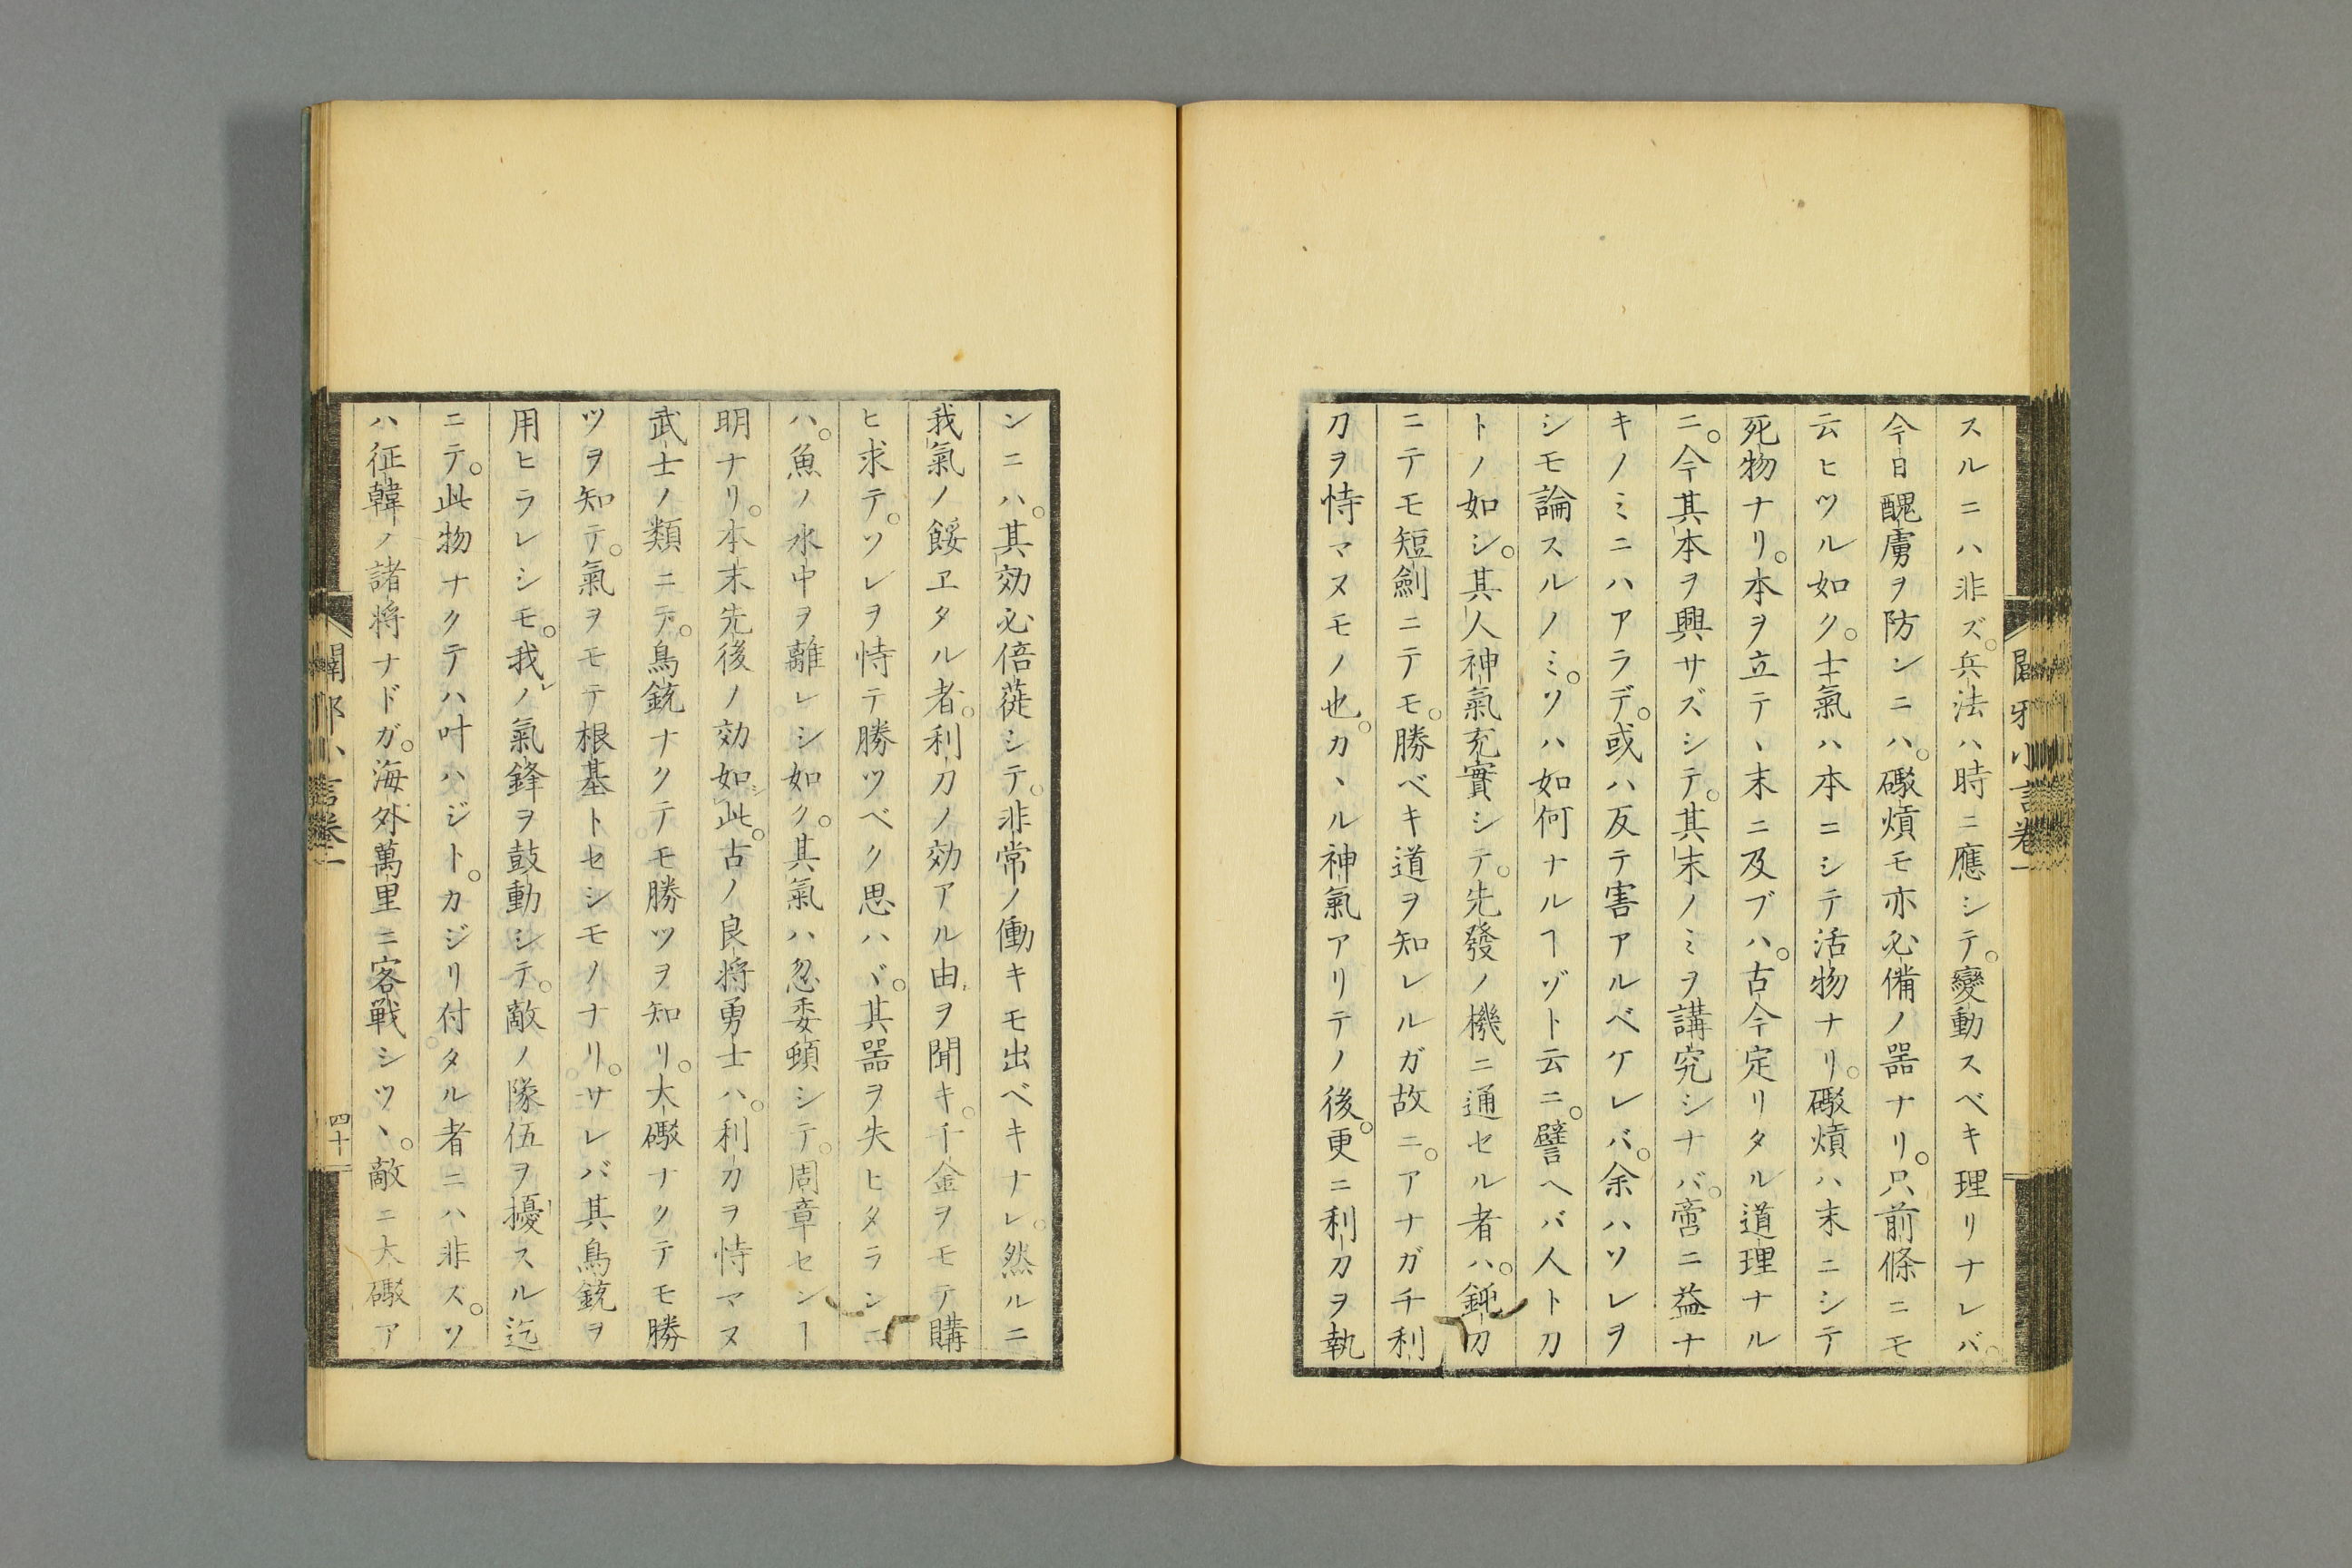 スルニハ非ズ。兵法ハ時ニ應シテ。變動スベキ理リナレバ。
今日醜虜ヲ防ンニハ。礮熕モ亦必備ノ器ナリ。只前條ニモ
云ヒツル如ク。士氣ハ本ニシテ活物ナリ。礮熕ハ末ニシテ
死物ナリ。本ヲ立テ、末ニ及ブハ。古今定リタル道理ナル
ニ。今其本ヲ興サズシテ。其末ノミヲ講究シナバ。啻ニ益ナ
キノミニハアラデ。或ハ反テ害アルベケレバ。余ハソレヲ
シモ論スルノミ。ソハ如何ナルヿゾト云ニ。譬ヘバ人ト刀
トノ如シ。其人神氣充實シテ。先發ノ機ニ通セル者ハ。鈍刀
ニテモ短劍ニテモ。勝ベキ道ヲ知レルガ故ニ。アナガチ利
刀ヲ恃マヌモノ也。カヽル神氣アリテノ後。更ニ利刀ヲ執
ンニハ。其効必倍蓰シテ。非常ノ働キモ出ベキナレ。然ルニ
我氣ノ餒ヱタル者。利刀ノ効アル由ヲ聞キ。千金ヲモテ購
ヒ求テ。ソレヲ恃テ勝ツベク思ハヾ。其器ヲ失ヒタランニ
ハ。魚ノ水中ヲ離レシ如ク。其氣ハ忽委頓シテ。周章センヿ
明ナリ。本末先後ノ効如此シ。古ノ良將勇士ハ。利刀ヲ恃マヌ
武士ノ類ニテ。鳥銃ナクテモ勝ツヲ知リ。大礮ナクテモ勝
ツヲ知テ。氣ヲモテ根基トセシモノナリ。サレバ其鳥銃ヲ
用ヒラレシモ。我ノ氣鋒ヲ鼓動シテ。敵ノ隊伍ヲ擾スル迄
ニテ。此物ナクテハ叶ハジト。カジリ付タル者ニハ非ズ。ソ
ハ征韓ノ諸将ナドガ。海外萬里ニ客戦シツヽ。敵ニ大礮ア
闢邪小言卷一
四十一